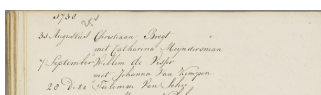 1738
31 Augustus Christiaan Bregt
met Catharina Meyndersman
7 September Willem de
met Johanna Van Kempen
20 D: za Tieleman Van